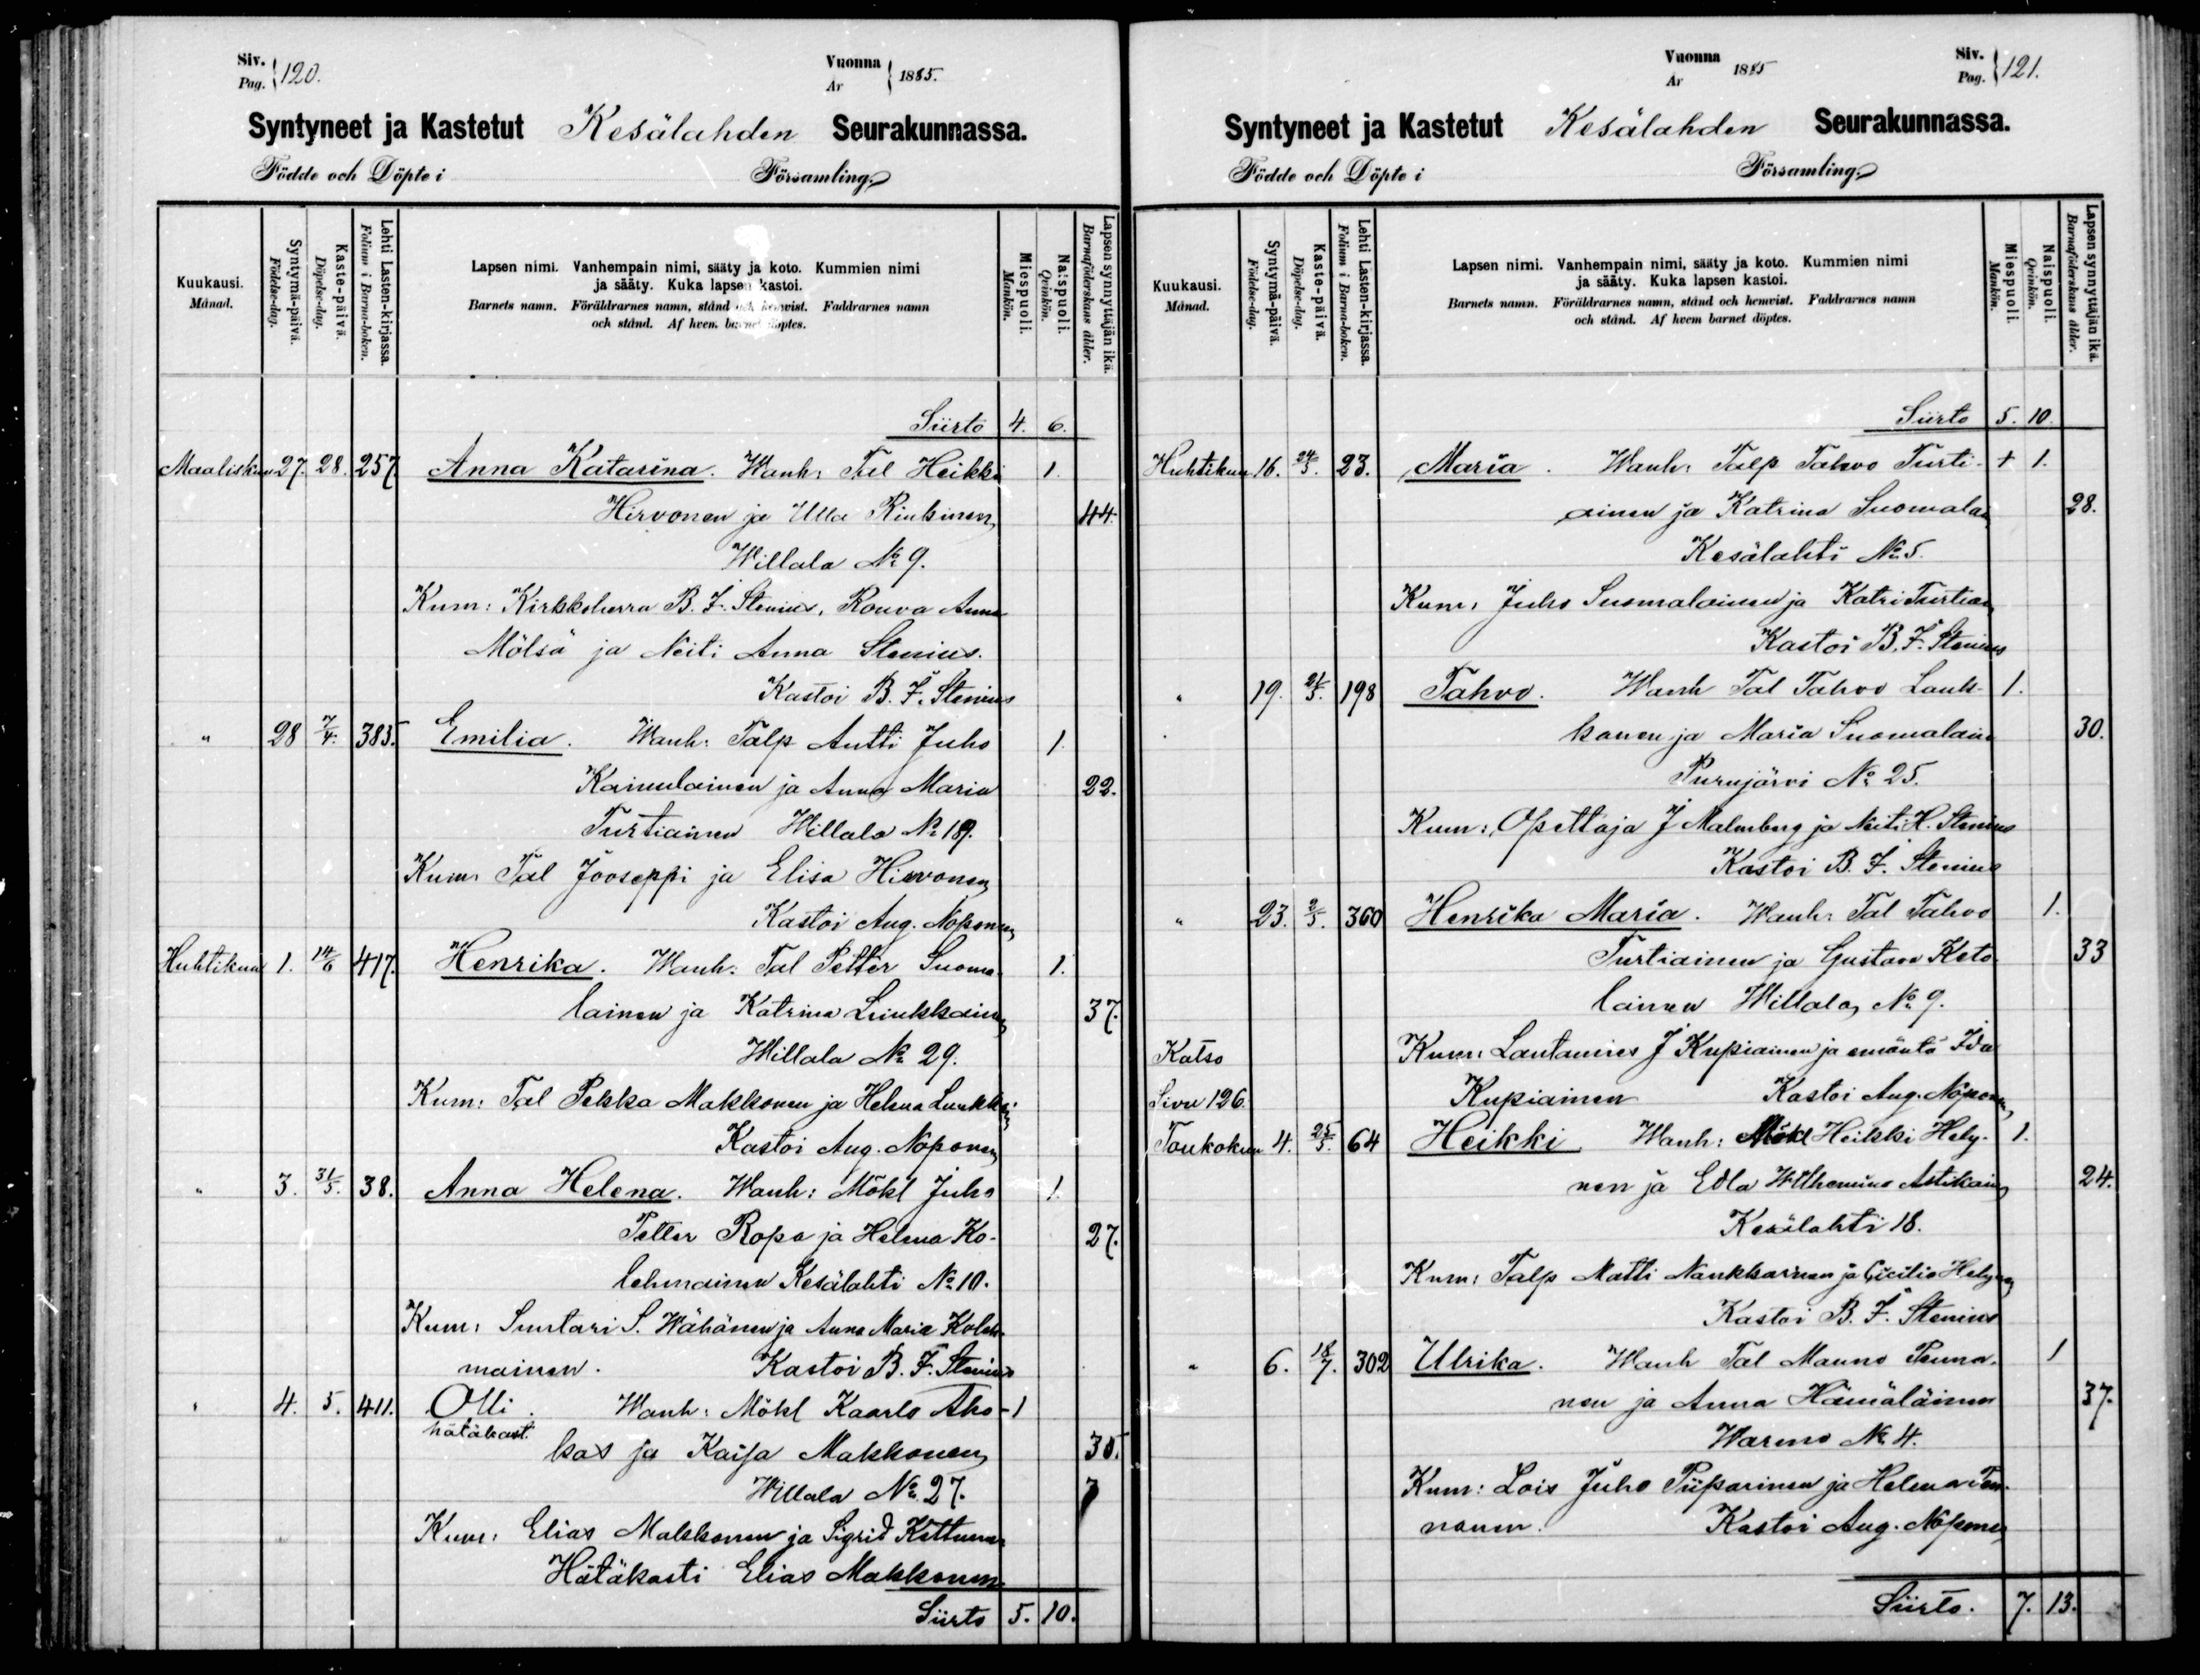 Siv.
Pag. 120.
Vuonna
År 1885.
Syntyneet ja Kastetut Kesälahden Seurakunnassa.
Födde och Döpte i Församling.
Kuukausi.
Månad.
Syntymä-päivä.
Födelse-dag.
Kaste-päivä.
Döpelse-dag.
Lehti Lasten-kirjassa.
Folium i Barna-boken.
Lapsen nimi. Vanhempain nimi, sääty ja koto. Kummien nimi
ja sääty. Kuka lapsen kastoi.
Barnets namn. Föräldrarnes namn, stånd och hemvist. Faddrarnes namn
och stånd. Af hvem barnet döptes.
Miespuoli.
Mankön.
Naispuoli.
Qvinkön.
Lapsen synnyttäjän ikä.
Barnaföderskans ålder.
Siirto 4. 6.
Maaliskuu 27. 28. 257. Anna Katarina. Wanh: Tal Heikki 1.
Hirvonen ja Ulla Rinkinen 44.
Willala № 9.
Kum: Kirkkoherra B. F. Stenius, Rouva Anna
Mölsä ja Neiti Anna Stenius.
Kastoi B. F. Stenius
" 28 7/4. 385. Emilia. Wanh: Talp Antti Juho 1
Kainulainen ja Anna Maria 22.
Turtiainen Willala № 19.
Kum: Tal Jooseppi ja Elisa Hirvonen
Kastoi Aug. Noponen
Huhtikuu 1. 14/6 417. Henrika. Wanh: Tal Petter Suoma- 1.
lainen ja Katrina Luukkainen 37.
Willala № 29.
Kum: Tal Pekka Makkonen ja Helena Luukkain
Kastoi Aug. Noponen
" 3. 31/5. 38. Anna Helena. Wanh: Mökl Juho 1.
Petter Ropo ja Helena Ko- 27.
lehmainen Kesälahti № 10.
Kum: Suntari S. Wähänen ja Anna Maria Koleh-
mainen. Kastoi B. F. Stenius
" 4. 5. 411. Olli. Wanh: Mökl Kaarlo Aho- 1
hätäkast.
kas ja Kaisa Makkonen 35.
Willala № 27. 7
Kum: Elias Makkonen ja Sigrid Kettunen
Hätäkasti Elias Makkonen
Siirto 5. 10.
Vuonna
År 1885
Siv.
Pag. 121.
Syntyneet ja Kastetut Kesälahden Seurakunnassa.
Födde och Döpte i Församling.
Kuukausi.
Månad.
Syntymä-päivä.
Födelse-dag.
Kaste-päivä.
Döpelse-dag.
Lehti Lasten-kirjassa.
Folium i Barna-boken.
Lapsen nimi. Vanhempain nimi, sääty ja koto. Kummien nimi
ja sääty. Kuka lapsen kastoi.
Barnets namn. Föräldrarnes namn, stånd och hemvist. Faddrarnes namn
och stånd. Af hvem barnet döptes.
Miespuoli.
Mankön.
Naispuoli.
Qvinkön.
Lapsen synnyttäjän ikä.
Barnaföderskans ålder.
Siirto 5. 10.
Huhtikuu 16. 24/5. 23. Maria. Wanh: Talp Tahvo Turti- + 1.
ainen ja Katrina Suomalan 28.
Kesälahti № 5.
Kum: Juho Suomalainen ja Katri Turtian
Kastoi B. F. Stenius
" 19. 21/5. 198 Tahvo. Wanh Tal Tahvo Lauk- 1.
kanen ja Maria Suomalain 30.
Purujärvi № 25.
Kum: Opettaja J Malmberg ja Neiti H. Stenius
Kastoi B. F. Stenius
" 23. 2/5. 360 Henrika Maria. Wanh: Tal Tahvo 1.
Turtiainen ja Gustava Keto- 33
lainen Willala № 9.
Katso Kum: Lautamies J Kupiainen ja emäntä Ida
Sivu 126. Kupiainen Kastoi Aug. Noponen
Toukokuu 4. 25/5. 64 Heikki Wanh: Mökl Heikki Hely- 1.
nen ja Edla Wilhemina Astikain 24.
Kesälahti 18.
Kum: Talp Matti Naukkarinen ja Cicilia Helynen
Kastoi B. F. Stenius
" 6. 18/7. 302 Ulrika. Wanh Tal Mauno Penna- 1
nen ja Anna Hämäläinen 37.
Warmo № 4.
Kum: Lois Juho Piiparinen ja Helena Pen-
nanen. Kastoi Aug. Noponen
Siirto. 7. 13.